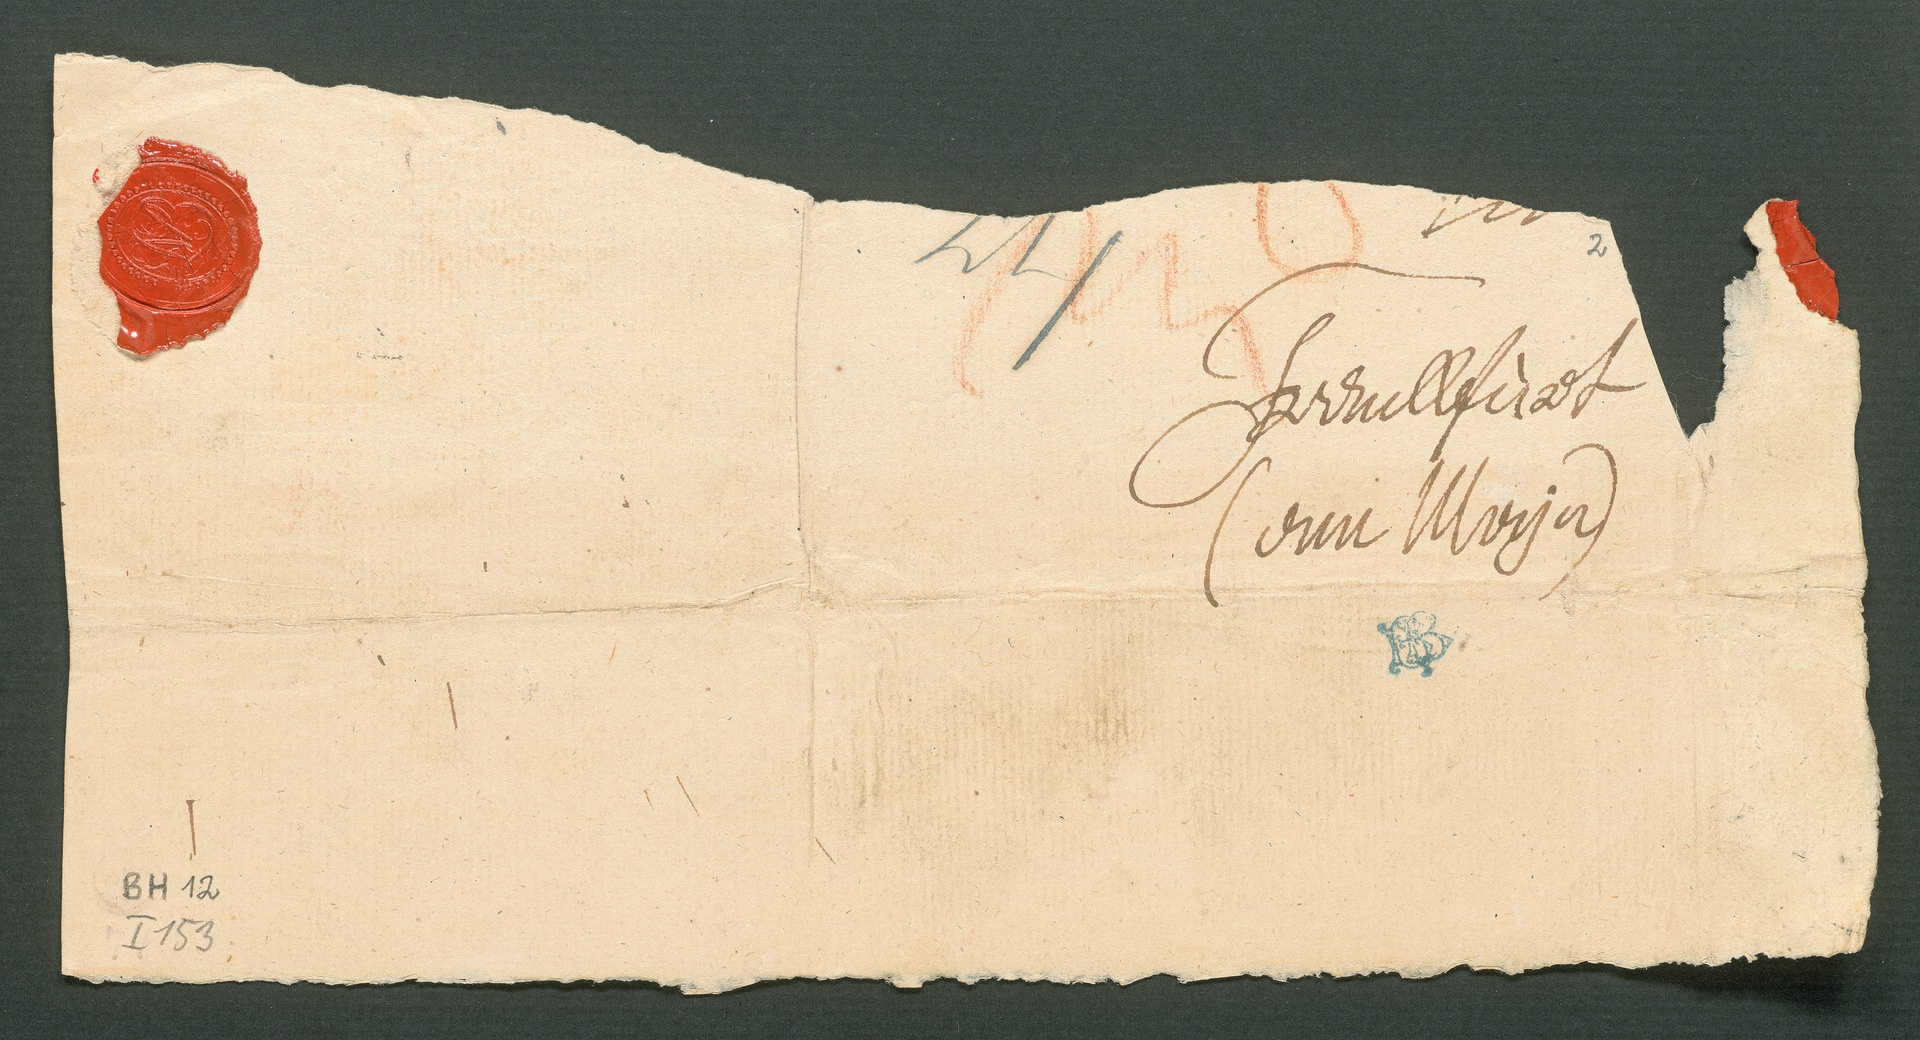 2
Frankfurt
(am Mayn)
BH 12
I 153